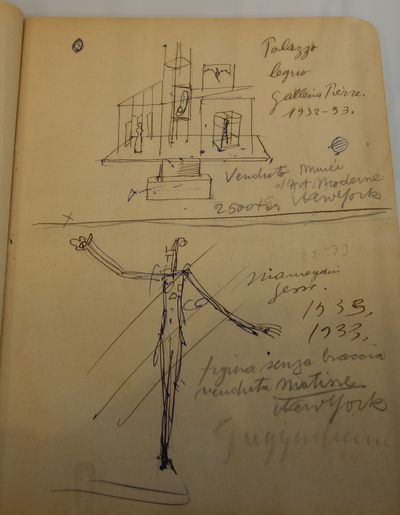 Palazzo
legno
Galleria Pierre.
1932-33.
Venduto Musée
d'Art Moderne
2500 NewYork
32-33
gesso.
1933,
1933.
figura senza braccia
venduta Matisse
NewYork
Guggenheim